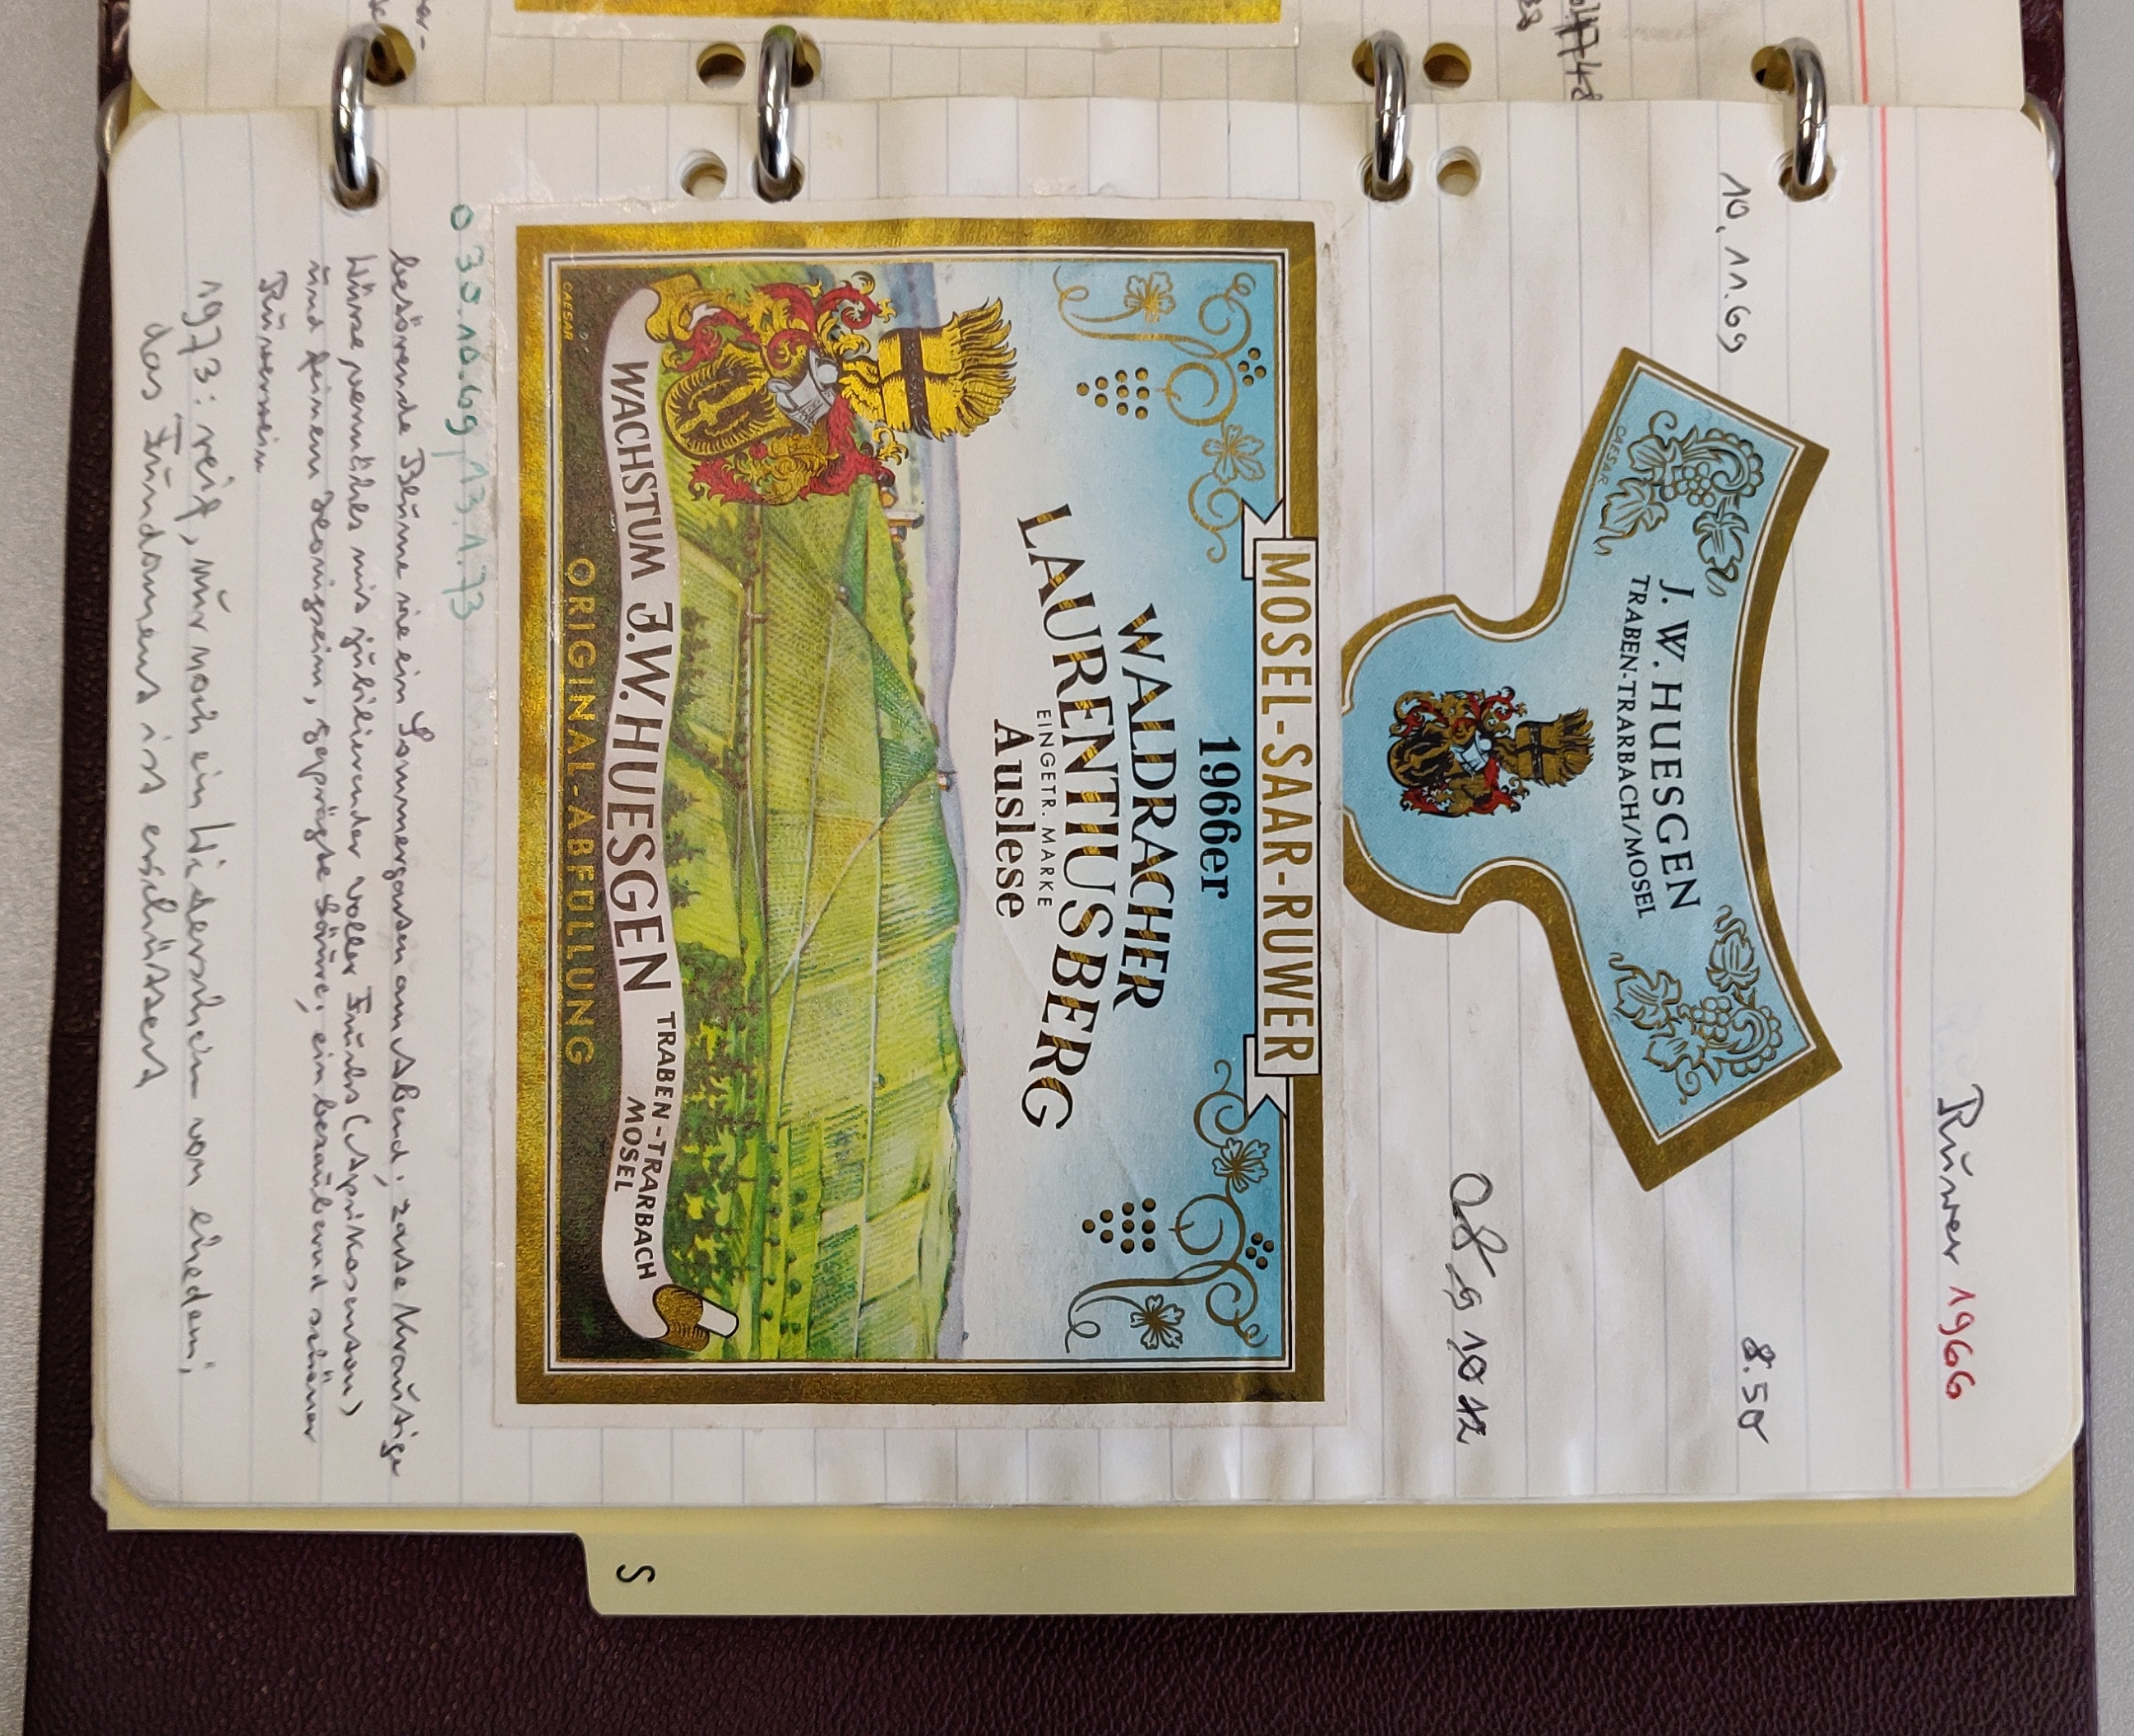 Ruwer 1966
10.11.69
8.50
J. W. HUESGEN
TRABEN-TRARBACH/MOSEL
CAESAR
MOSEL-SAAR-RUWER
1966er
WALDRACHER
LAURENTIUSBERG
EINGETR. MARKE
Auslese
WACHSTUM J.W. HUESGEN TRABEN-TRARBACH
MOSEL
ORIGINAL-ABFÜLLUNG
CAESAR
S
30.10.69, 13.1.73
betörende Blume wie ein Sommergarten am Abend; zarte Krautige
Würze vermählt mit jubilierender voller Frucht (Aprikosenton)
und feinem Honigseim, geprägte Säure; ein bezaubernd schöner
Ruwerwein
1973: reif, nur noch ein Widerschein von ehedem;
das Fundament ist erschüttert